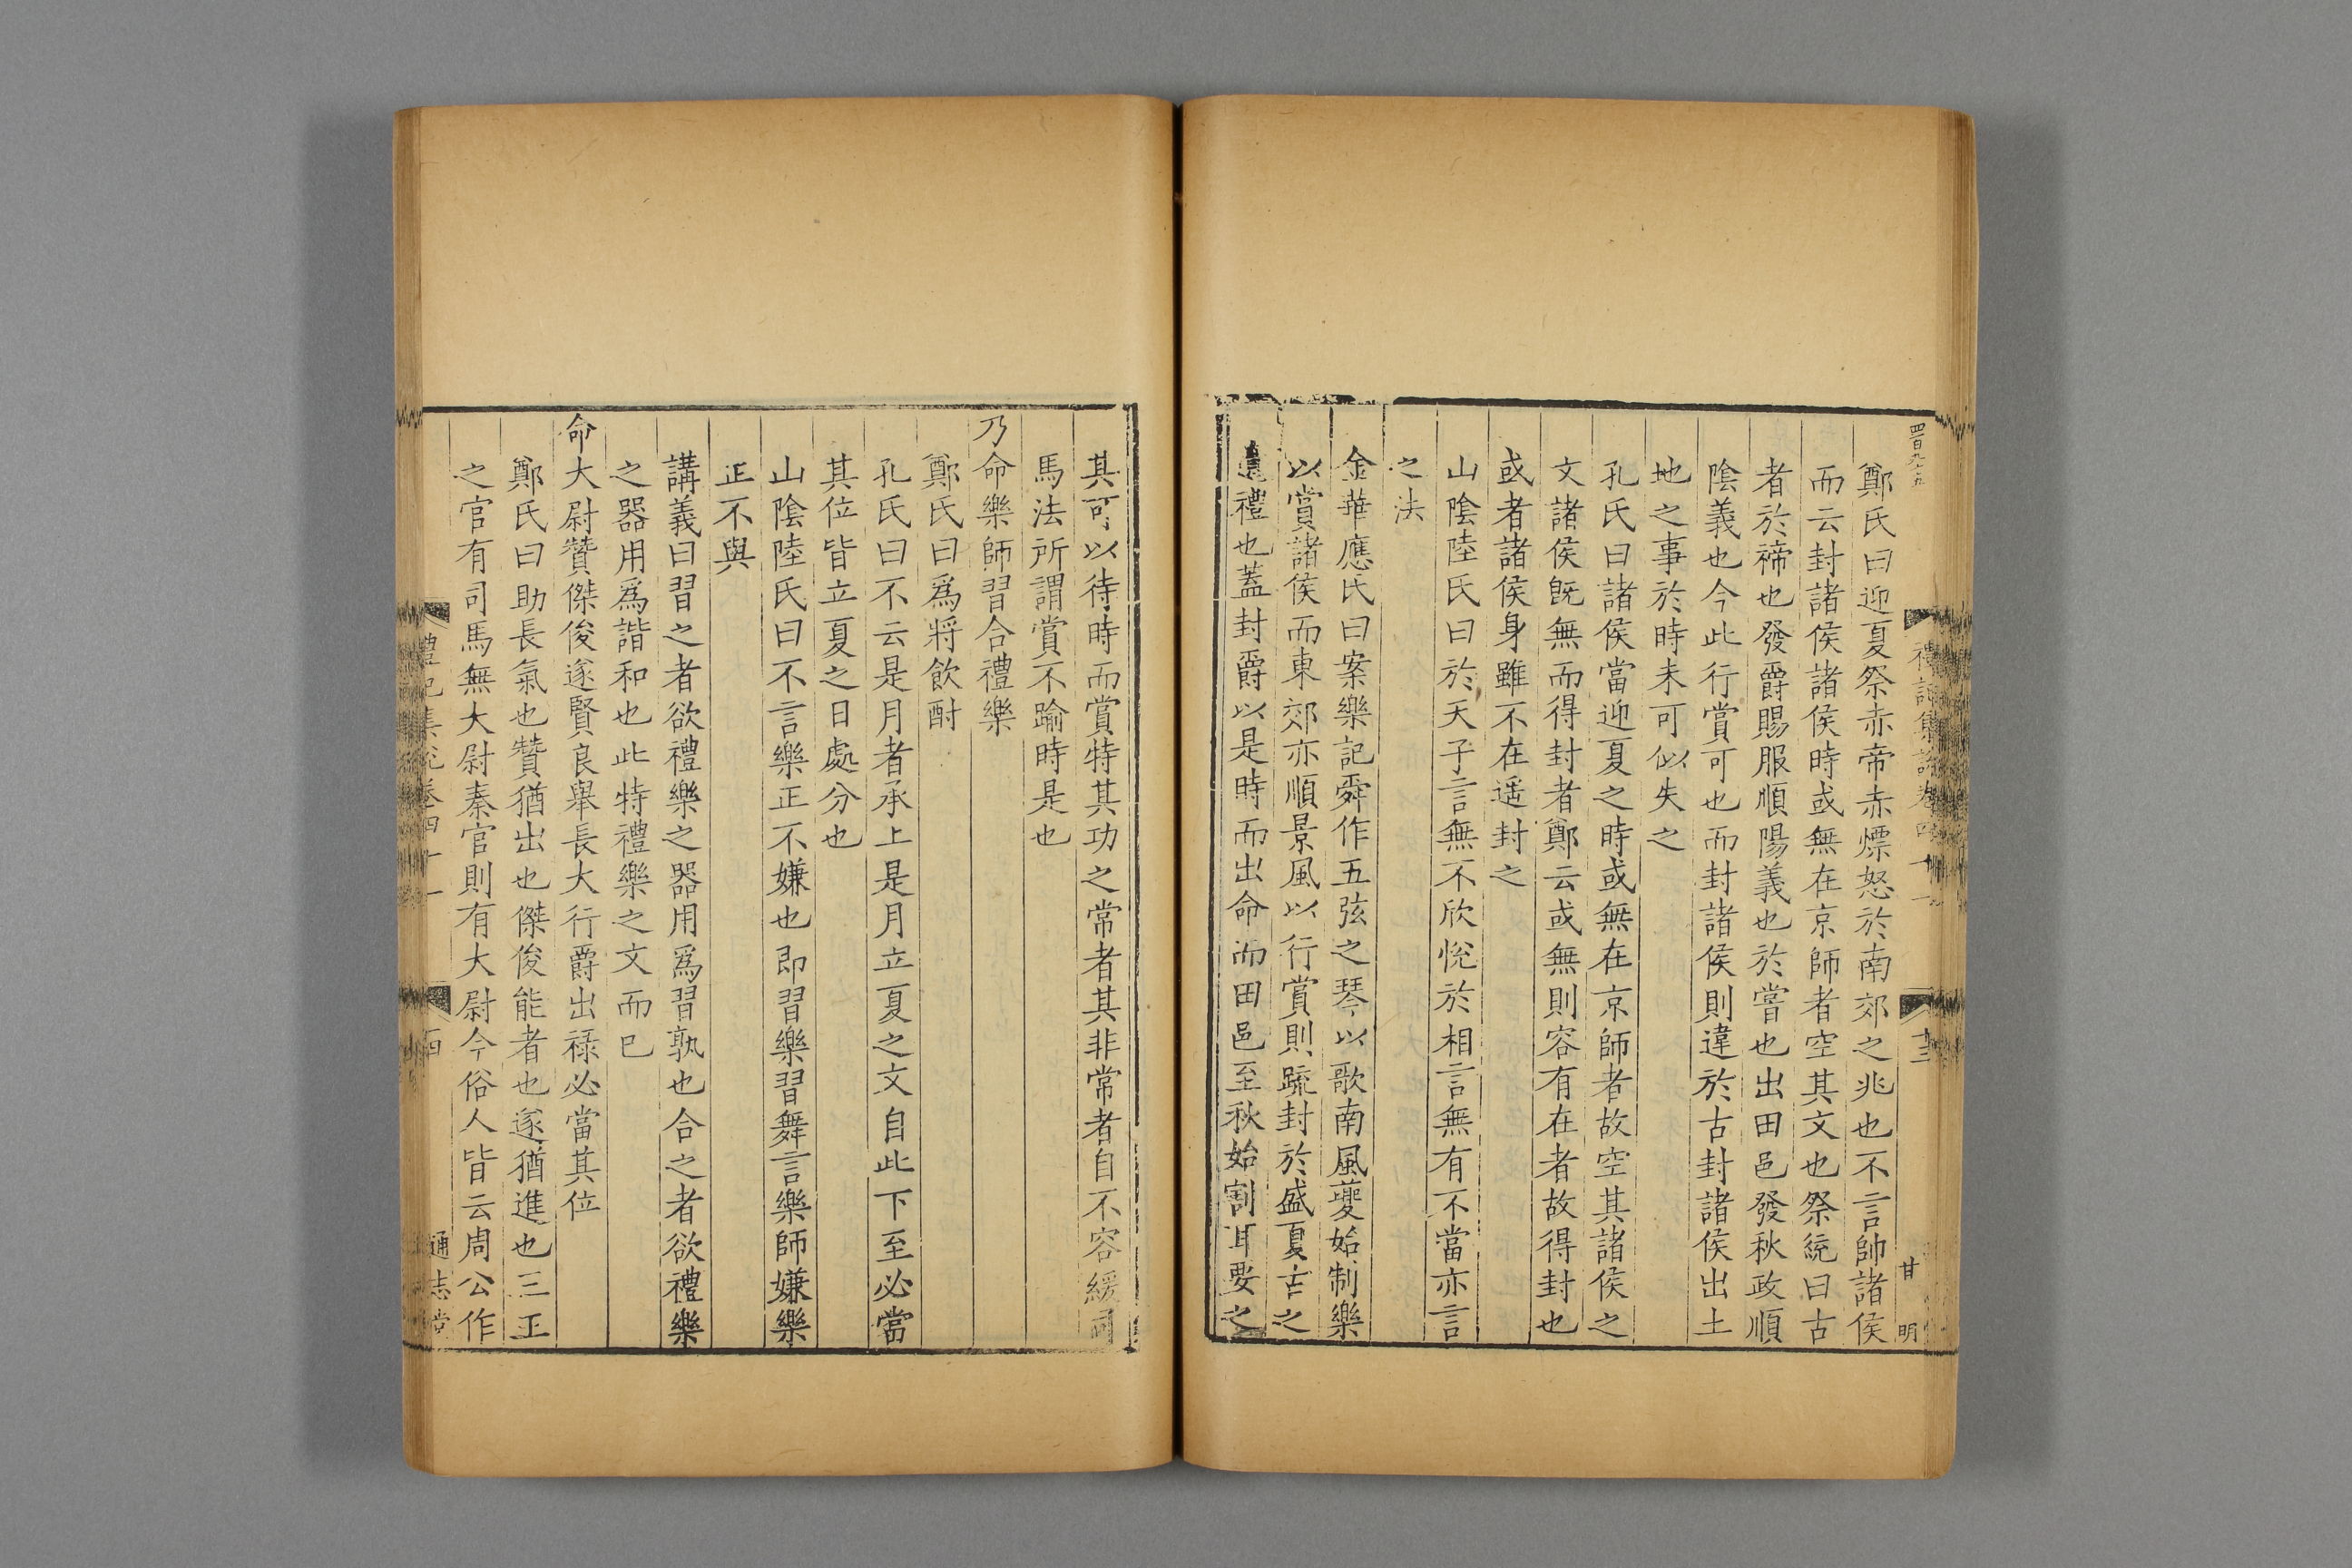 四百九七五
禮記集説卷四十一
十三
甘
明
鄭氏曰迎夏祭赤帝赤熛怒於南郊之兆也不言帥諸侯
而云封諸侯諸侯時或無在京師者空其文也祭統曰古
者於禘也發爵賜服順陽義也於嘗也出田邑發秋政順
陰義也今此行賞可也而封諸侯則違於古封諸侯出土
地之事於時未可似失之
孔氏曰諸侯當迎夏之時或無在京師者故空其諸侯之
文諸侯旣無而得封者鄭云或無則容有在者故得封也
或者諸侯身雖不在遥封之
山陰陸氏曰於天子言無不欣悅於相言無有不當亦言
之法
金華應氏曰案樂記舜作五弦之琴以歌南風夔始制樂
以賞諸侯而東郊亦順景風以行賞則疏封於盛夏古之
遺禮也蓋封爵以是時而出命而田邑至秋始割耳要之
其可以待時而賞特其功之常者其非常者自不容緩司
馬法所謂賞不踰時是也
乃命樂師習合禮樂
鄭氏曰爲將飲酎
孔氏曰不云是月者承上是月立夏之文自此下至必當
其位皆立夏之日處分也
山陰陸氏曰不言樂正不嫌也即習樂習舞言樂師嫌樂
正不與
講義曰習之者欲禮樂之器用爲習孰也合之者欲禮樂
之器用爲諧和也此特禮樂之文而已
命大尉贊傑俊遂賢良舉長大行爵出禄必當其位
鄭氏曰助長氣也贊猶出也傑俊能者也遂猶進也三王
之官有司馬無大尉秦官則有大尉今俗人皆云周公作
禮記集説卷四十一
十四
通志堂